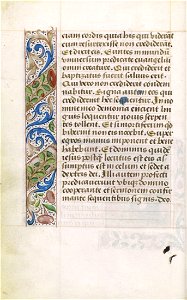 ciam cordis quia his qui viderāt
eum resurrexisse non crediderāt
Et dixit eis. Euntes in mundū
universum predicate euangeliū
omni creature. Qui crediderit et
baptizatus fuerit salvus erit.
Qui vero non crediderit condem
nabitur. Signa autem eos qui
crediderint hec sequentur. In no
mine meo demonia eicient lin
guis loquentur novis serpen
tes tollent. Et si mortiferū qd
biberint non eis nocebit. Super
egros manus imponent et bene
habebunt. Et dominus quidē
iesus postq̄ locutus est eis as
sumptus est in celum et sedet a
dextris dei. Illi autem profecti
predicaverunt ubiq̄ domino
cooperante et sermonem confir
mante sequentibus signis. deo